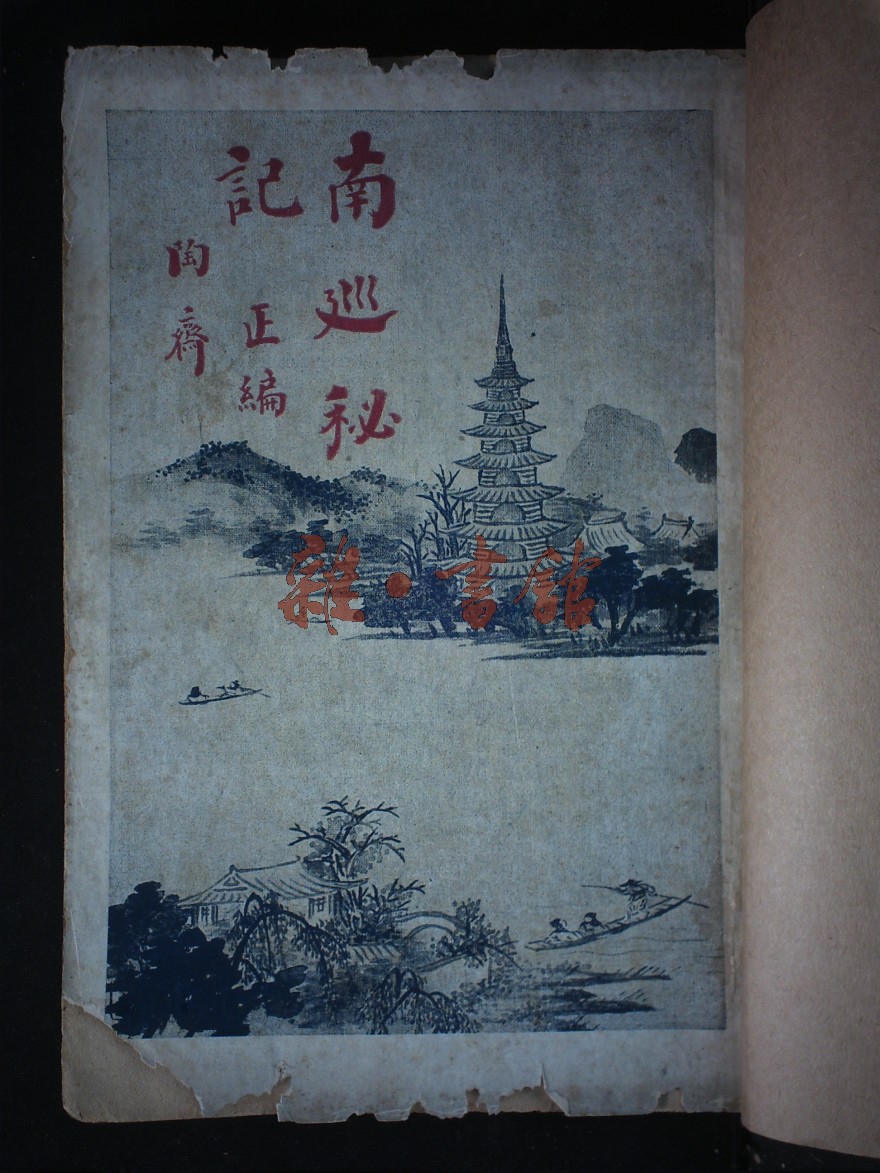 南巡秘
記
正編
陶齋
雜·書館